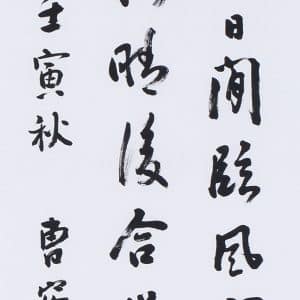 日間臨風
晴後合
壬寅秋 曹